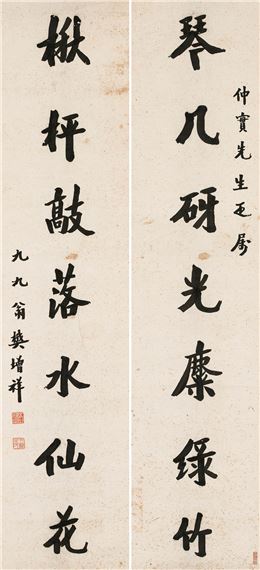 琴几砑光糜綠竹
仲實先生正属
楸枰敲落水仙花
九九翁樊增祥